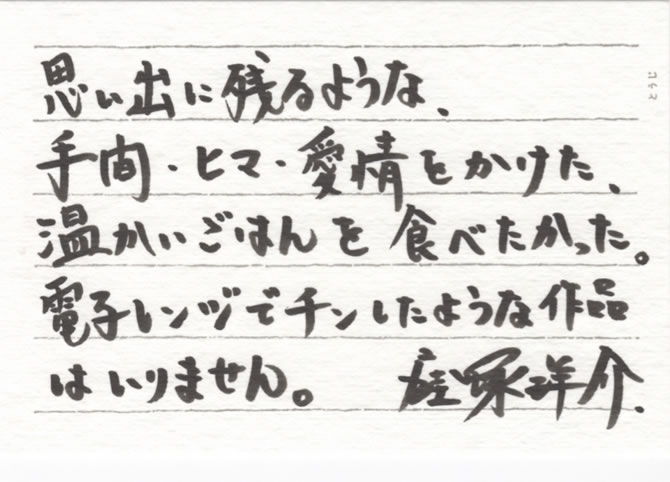 思い出に残るような、
手間・ヒマ・愛情をかけた、
温かいごはんを食べたかった。
電子レンヅでチンしたような作品
はいりません。 窪塚洋介.